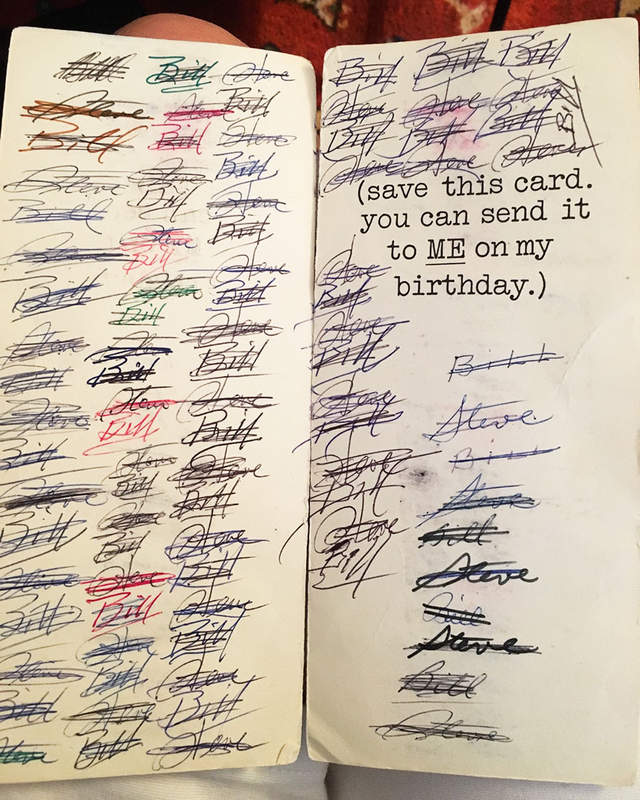 Bill
Steve
Bill
Steve
Bill
Steve
Bill
Steve
Bill
Steve
Bill
Steve
Bill
Steve
Bill
Steve
Bill
Steve
Bill
Steve
Bill
Steve
Bill
Steve
Bill
Steve
Bill
Steve
Bill
Steve
Bill
Steve
Bill
Steve
Bill
Steve
Bill
Steve
Bill
Steve
Bill
Steve
Bill
Steve
Bill
Steve
Bill
Steve
Bill
Steve
Bill
Steve
Bill
Steve
Bill
Steve
Bill
Steve
Bill
Steve
Bill
Steve
Bill Bill Bill
Steve Steve Steve
Bill Bill Bill
Steve Steve Steve
Bill
(save this card.
you can send it
to ME on my
birthday.)
Steve
Bill
Steve
Bill
Steve
Bill
Steve
Bill
Steve
Bill
Bill
Steve
Bill
Steve
Bill
Steve
Bill
Steve
Bill
Steve